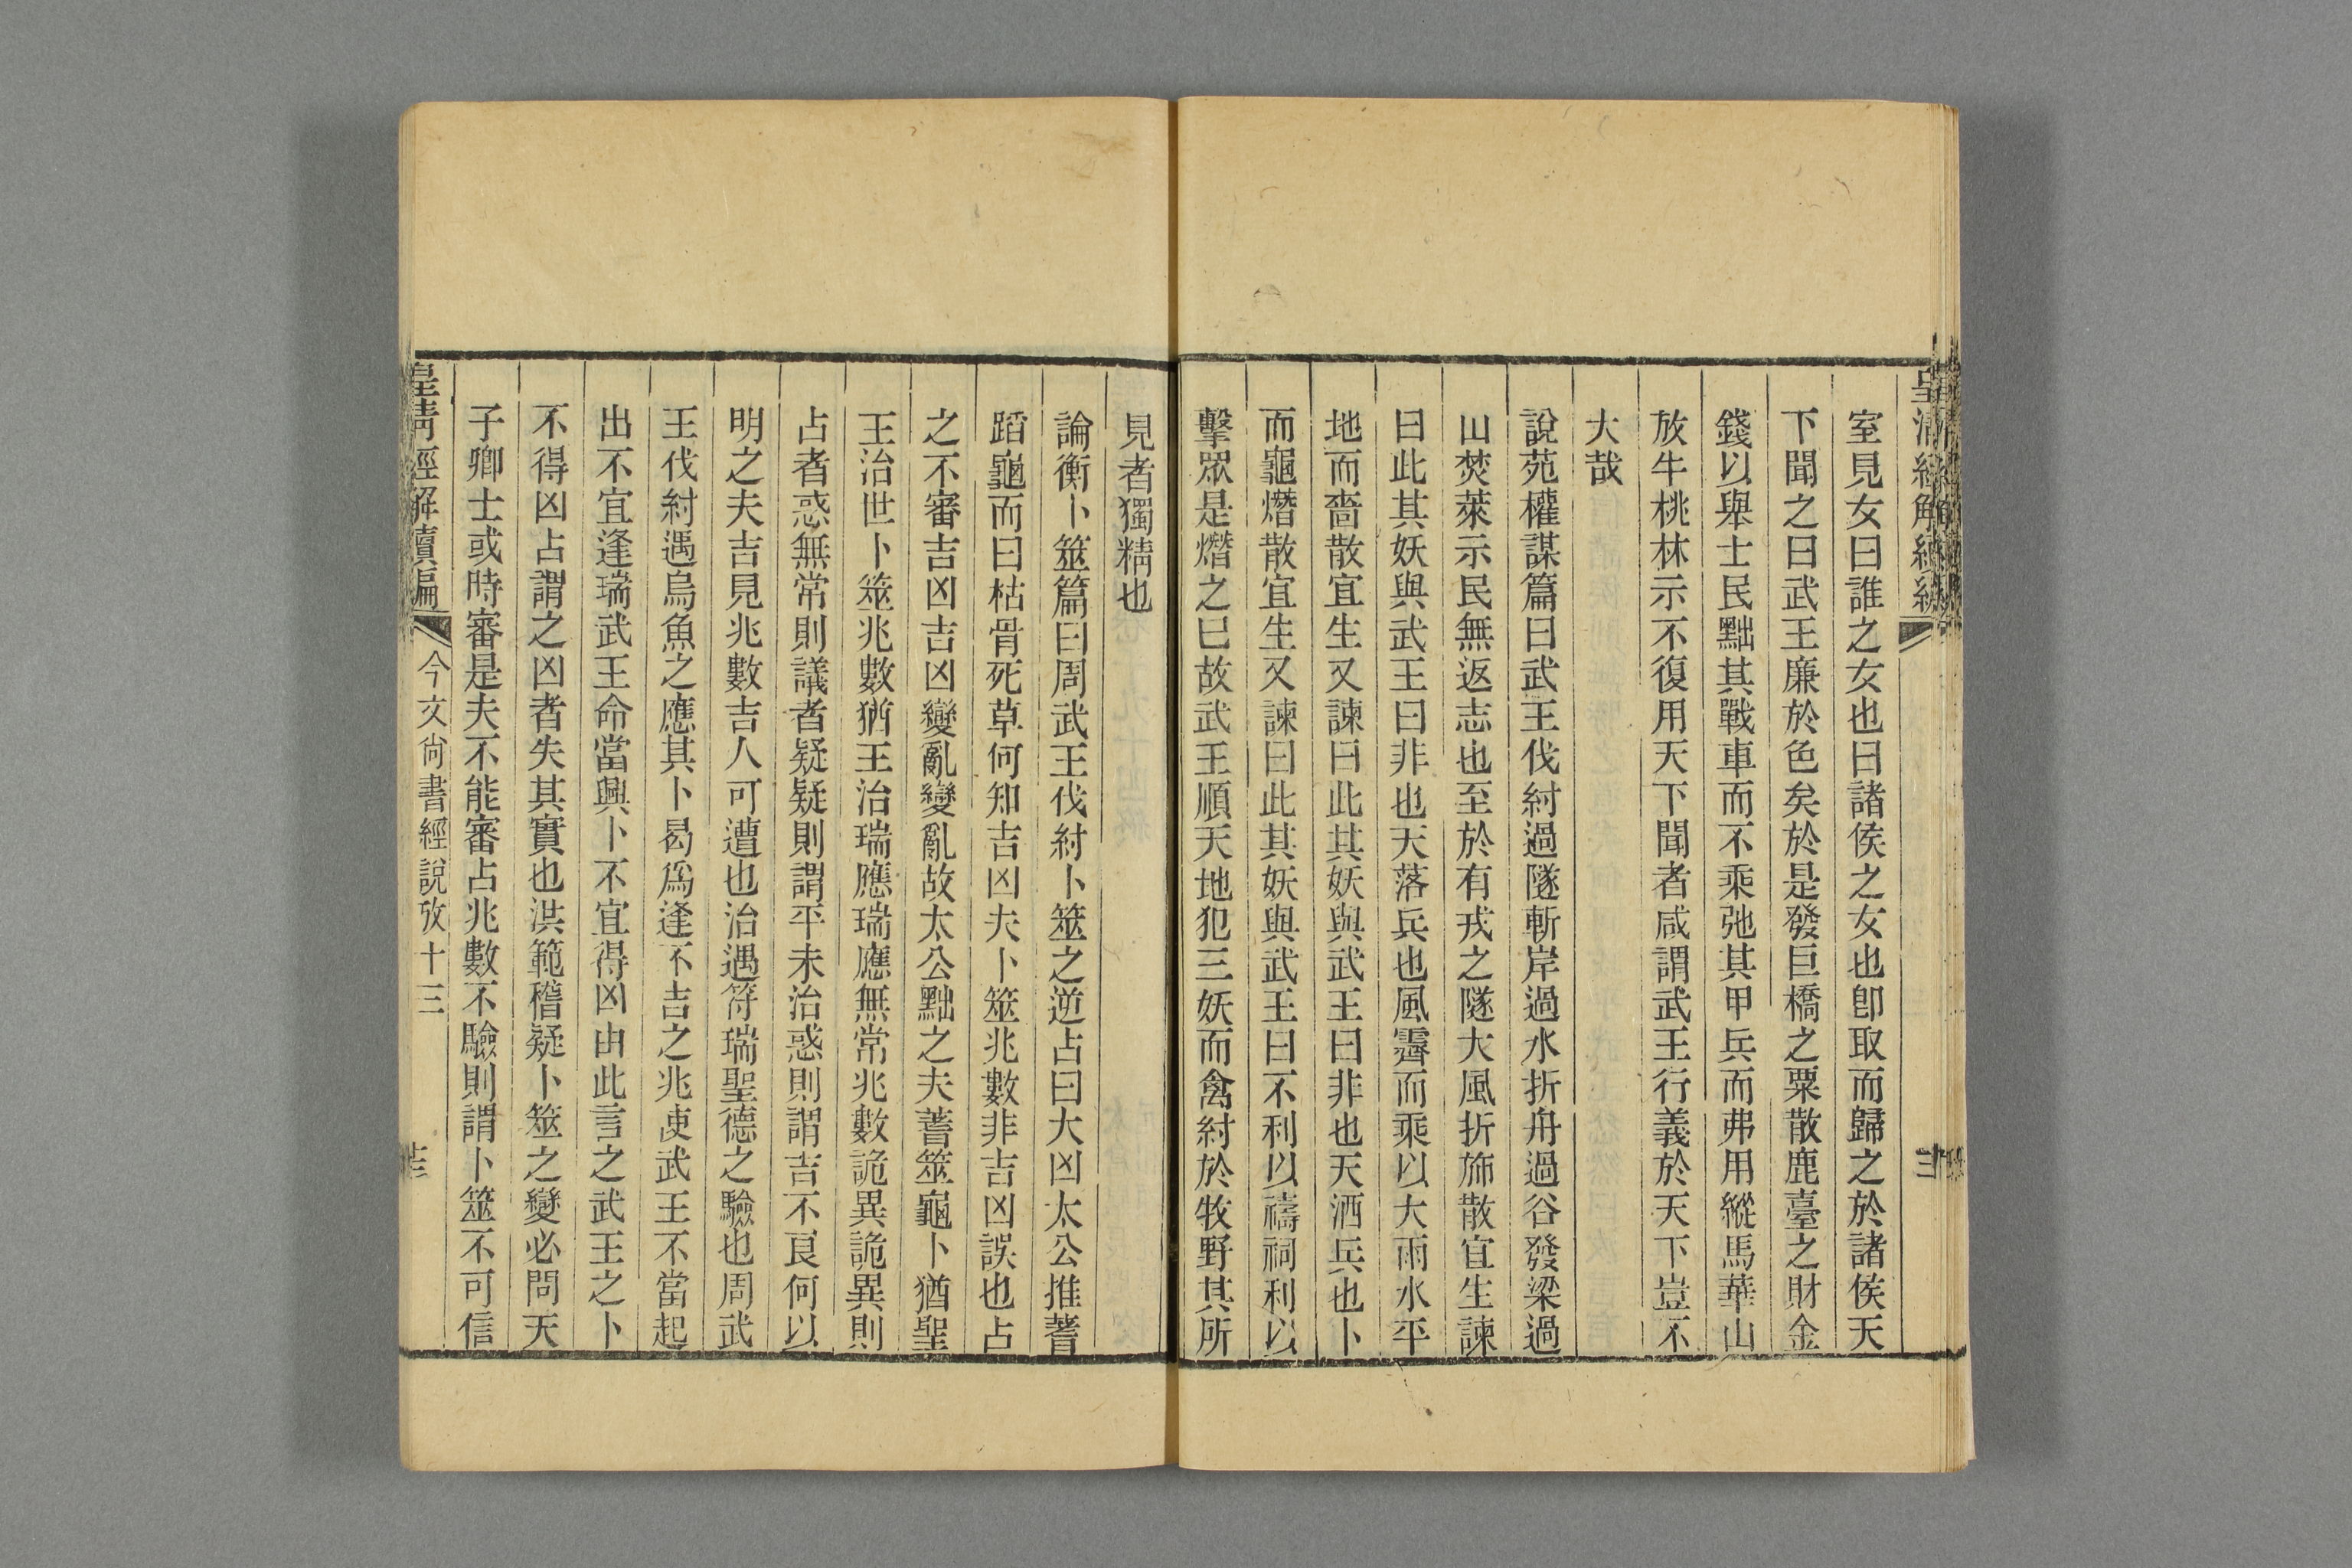 室見女曰誰之女也曰諸侯之女也卽取而歸之於諸侯天
下聞之曰武王廉於色矣於是發巨橋之粟散鹿臺之財金
錢以舉士民黜其戰車而不乘弛其甲兵而弗用縱馬華山
放牛桃林示不復用天下聞者咸謂武王行義於天下豈不
大哉
說苑權謀篇曰武王伐紂過隧斬岸過水折舟過谷發梁過
山焚萊示民無返志也至於有戎之隧大風折斾散宜生諫
曰此其妖與武王曰非也天落兵也風霽而乘以大雨水平
地而嗇散宜生又諫曰此其妖與武王曰非也天洒兵也卜
而龜熸散宜生又諫曰此其妖與武王曰不利以禱祠利以
擊眾是熸之已故武王順天地犯三妖而禽紂於牧野其所
見者獨精也
論衡卜筮篇曰周武王伐紂卜筮之逆占曰大凶太公推蓍
蹈龜而曰枯骨死草何知吉凶夫卜筮兆數非吉凶誤也占
之不審吉凶吉凶變亂變亂故太公黜之夫蓍筮龜卜猶聖
王治世卜筮兆數猶王治瑞應瑞應無常兆數詭異詭異則
占者惑無常則議者疑疑則謂平未治惑則謂吉不良何以
明之夫吉見兆數吉人可遭也治遇符瑞聖德之驗也周武
王伐紂遇烏魚之應其卜曷爲逢不吉之兆使武王不當起
出不宜逢瑞武王命當興卜不宜得凶由此言之武王之卜
不得凶占謂之凶者失其實也洪範稽疑卜筮之變必問天
子卿士或時審是夫不能審占兆數不驗則謂卜筮不可信
皇清經解續編
今文尚書經說攷十三